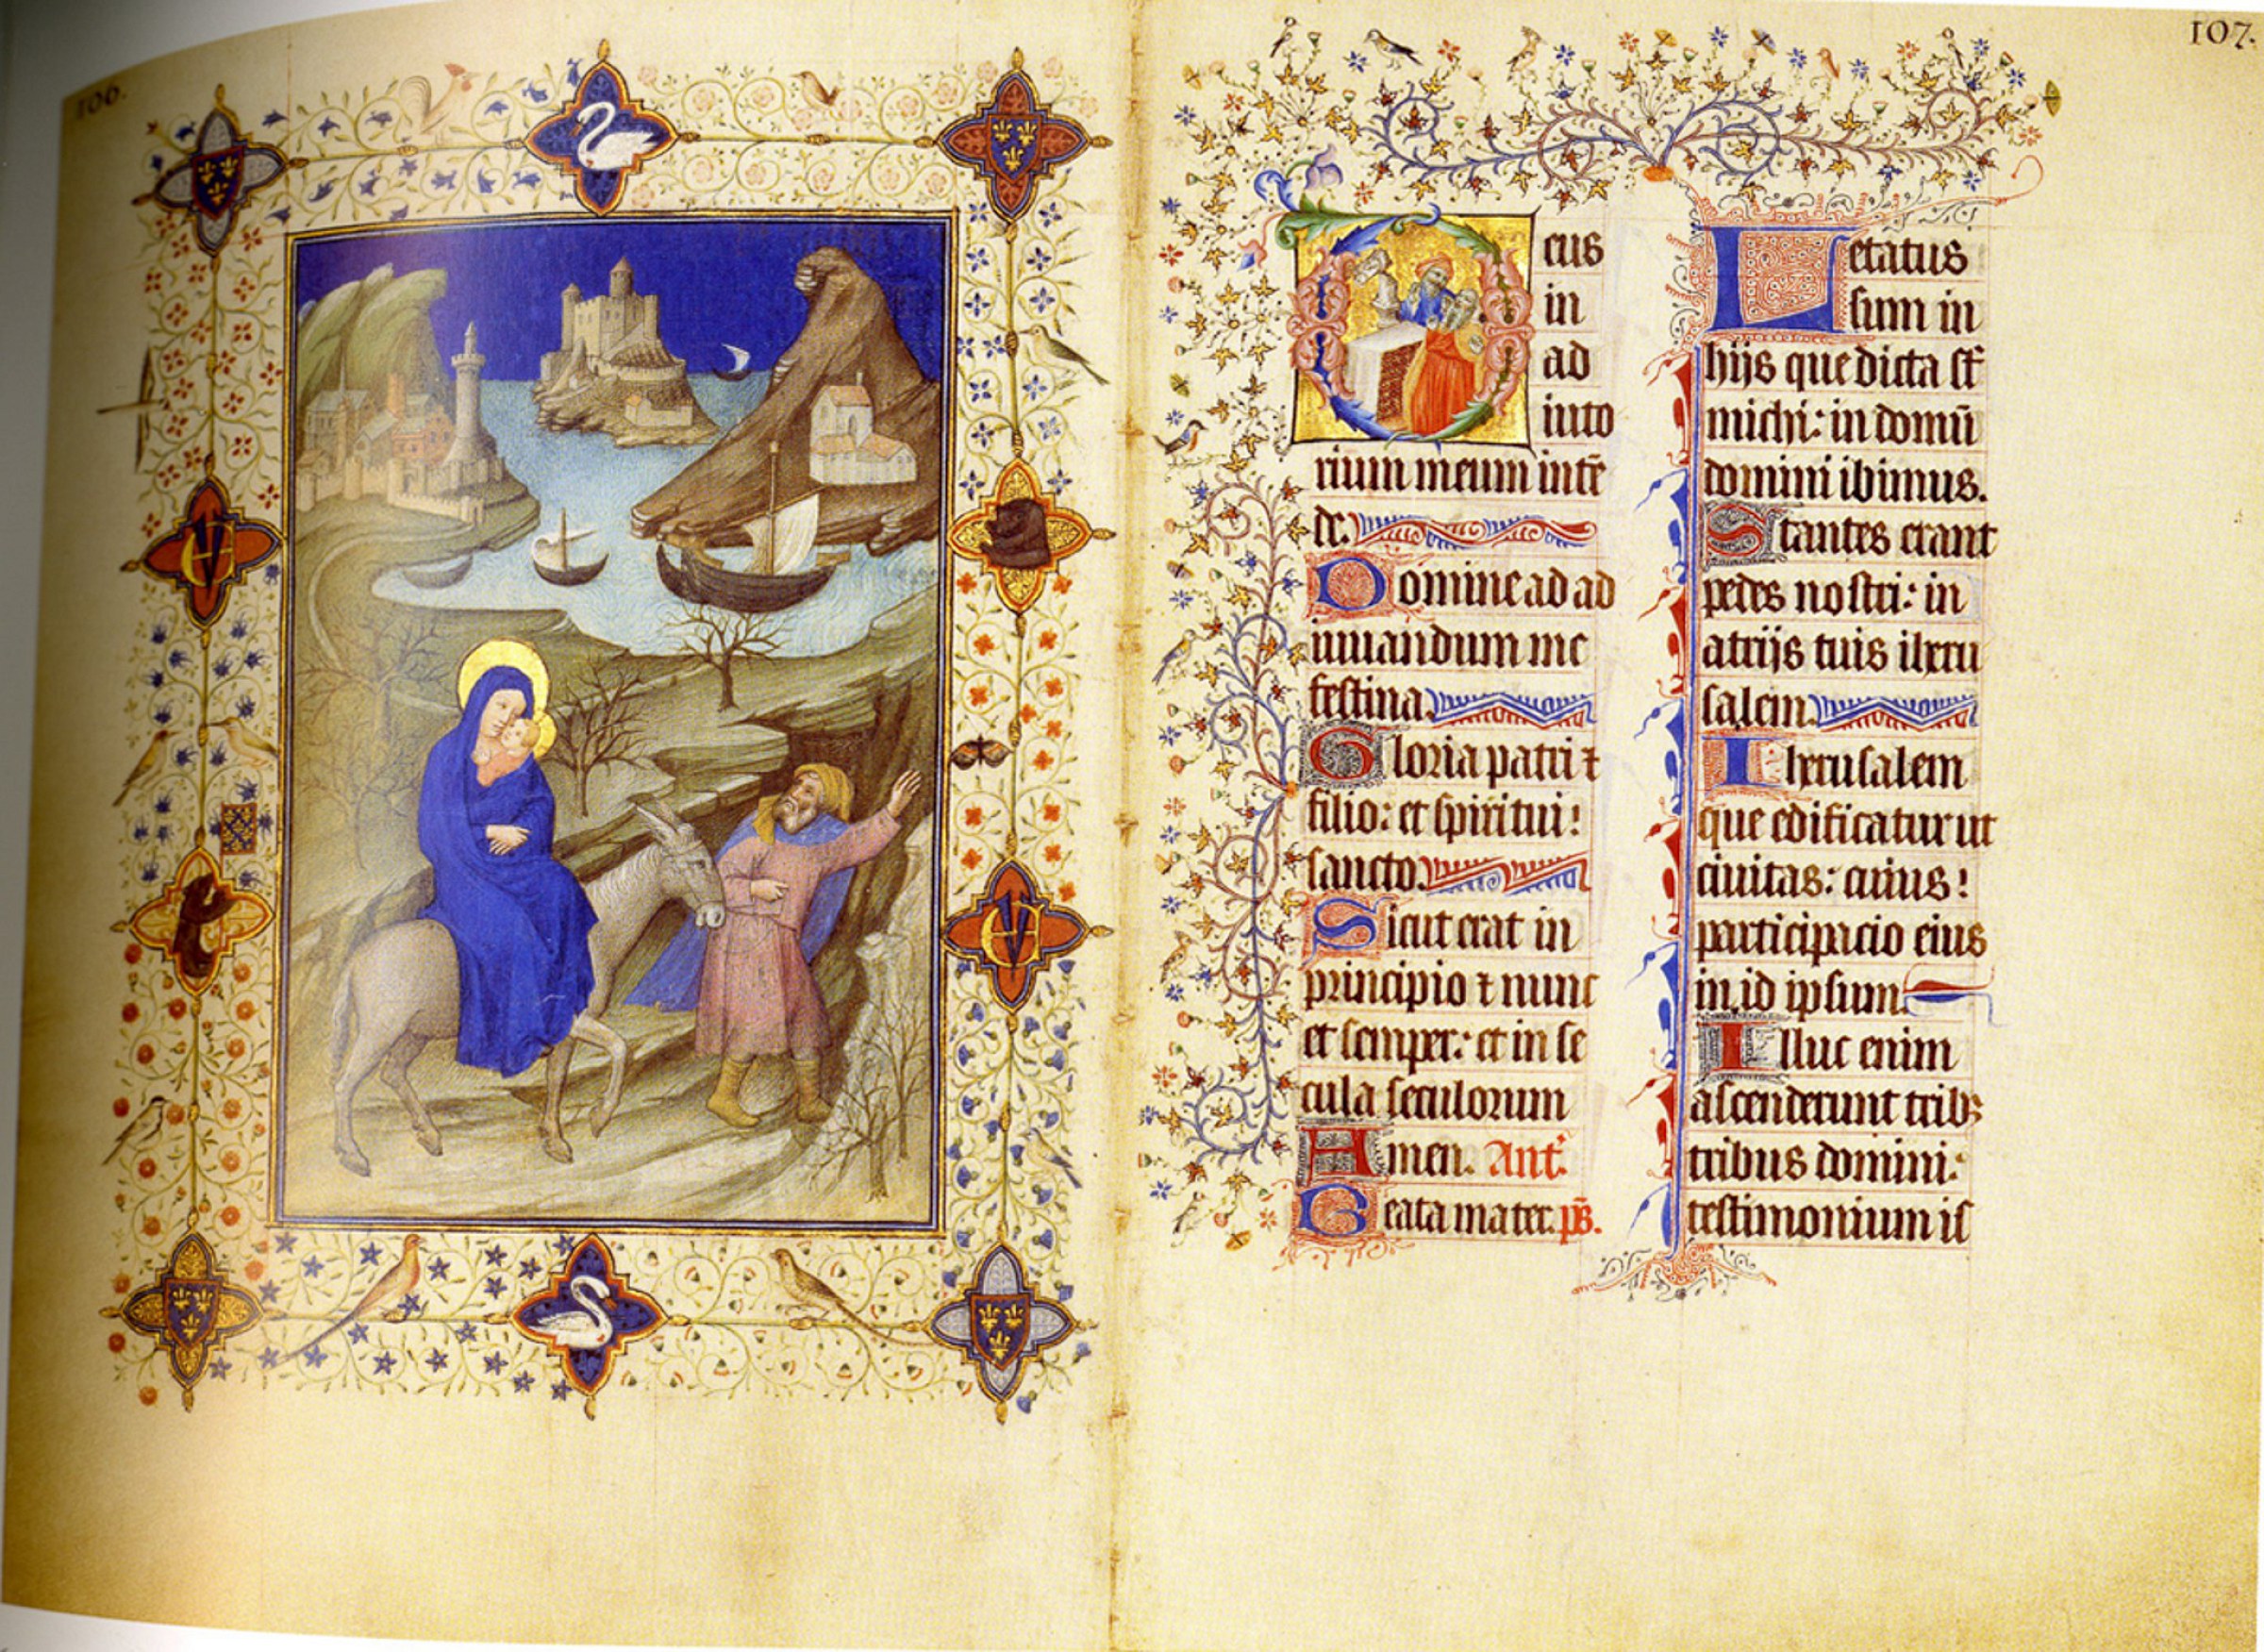 106.
107.
Deus
in
ad
iuto
rium meum intē
de.
Domine ad ad
iuuandum me
festina.
Gloria patri ⁊
filio: et spiritui!
sancto.
Sicut erat in
principio ⁊ nunc
et semper: et in se
cula seculorum
Amen. Ant.
Beata mater. ps̄.
Letatus
sum in
hijs que dicta st̄
michi: in domū
domini ibimus.
Stantes erant
pedes nostri: in
atrijs tuis iheru
salem.
Iherusalem
que edificatur ut
ciuitas: cuius!
participacio eius
in id ipsum.
Illuc enim
ascenderunt tribꝫ
tribus domini:
testimonium is